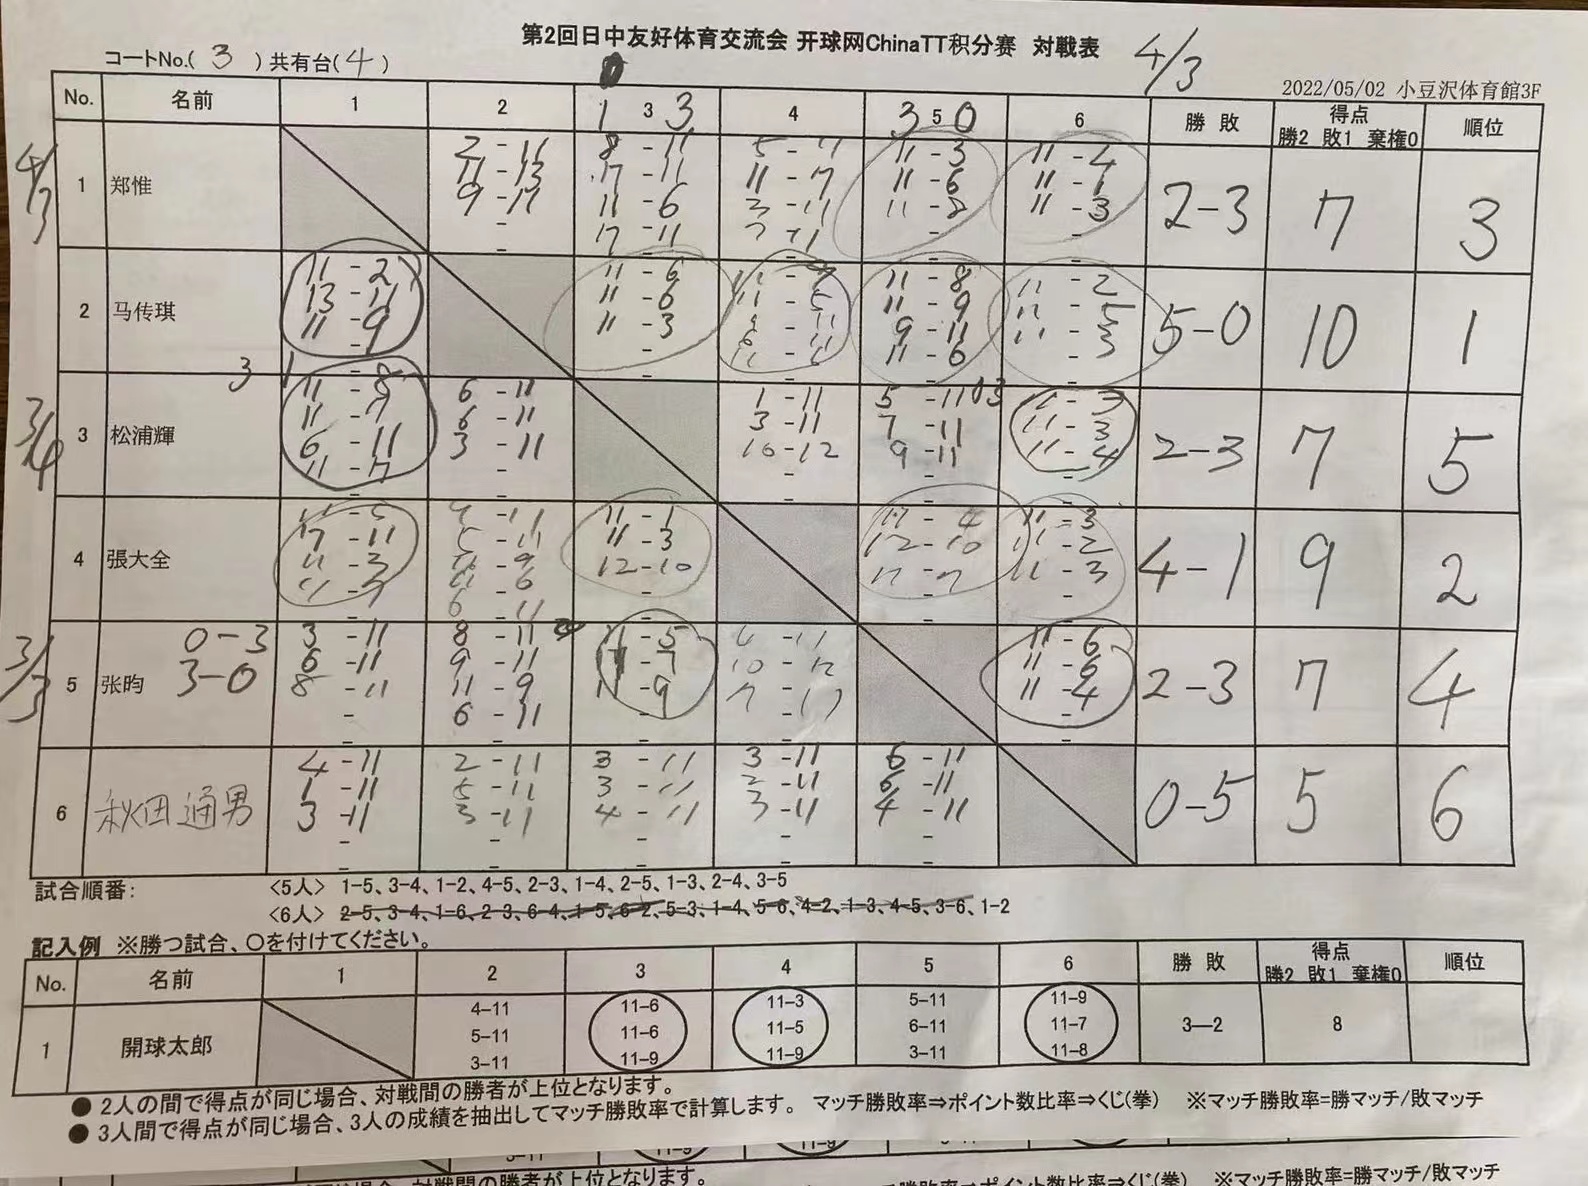 第2回日中友好体育交流会 开球网ChinaTT积分赛 対戦表
4/3
コートNo.( 3 ) 共有台( 4 )
2022/05/02 小豆沢体育館3F
1 3
3 0
No. 名前 1 2 3 4 5 6 勝 敗 得点 順位
勝2 敗1 棄権0
4/3
1 郑惟
2 - 11 8 - 11 11 - 3 11 - 4
11 - 13 11 - 6 11 - 1
9 - 11 11 - 6 11 - 8 11 - 3
2-3 7 3
2 马传琪
11 - 2 11 - 6 11 - 8 11 - 2
13 - 11 11 - 6 11 - 9 11 - 5
11 - 9 11 - 3 9 - 11 11 - 3
11 - 6
5-0 10 1
3 1
3/4
0 3
3 松浦輝
11 - 8 6 - 11 1 - 11 5 - 11 11 - 3
11 - 7 6 - 11 3 - 11 7 - 11 11 - 3
6 - 11 3 - 11 10 - 12 9 - 11 11 - 4
11 - 7
2-3 7 5
4 張大全
11 - 5 11 - 1 11 - 4 11 - 3
7 - 11 11 - 3 12 - 10 11 - 2
11 - 3 12 - 10 11 - 7 11 - 3
11 - 7 6 - 11
4-1 9 2
3/3
0-3
3-0
5 张昀
3 - 11 8 - 11 11 - 5 4 - 11 11 - 6
6 - 11 9 - 11 11 - 7 10 - 12 11 - 6
8 - 11 11 - 9 11 - 9 7 - 11 11 - 4
6 - 11
2-3 7 4
6 秋田通男
4 - 11 2 - 11 3 - 11 3 - 11 6 - 11
1 - 11 5 - 11 3 - 11 2 - 11 6 - 11
3 - 11 3 - 11 4 - 11 3 - 11 4 - 11
0-5 5 6
試合順番: <5人> 1-5、3-4、1-2、4-5、2-3、1-4、2-5、1-3、2-4、3-5
<6人> 2-5、3-4、1-6、2-3、6-4、1-5、6-2、5-3、1-4、5-6、4-2、1-3、4-5、3-6、1-2
記入例 ※勝つ試合、〇を付けてください。
No. 名前 1 2 3 4 5 6 勝 敗 得点 順位
勝2 敗1 棄権0
1 開球太郎
4-11 11-6 11-3 5-11 11-9
5-11 11-6 11-5 6-11 11-7
3-11 11-9 11-9 3-11 11-8
3—2 8
● 2人の間で得点が同じ場合、対戦間の勝者が上位となります。
● 3人間で得点が同じ場合、3人の成績を抽出してマッチ勝敗率で計算します。 マッチ勝敗率⇒ポイント数比率⇒くじ(拳) ※マッチ勝敗率=勝マッチ/敗マッチ
※マッチ勝敗率=勝マッチ/敗マッチ